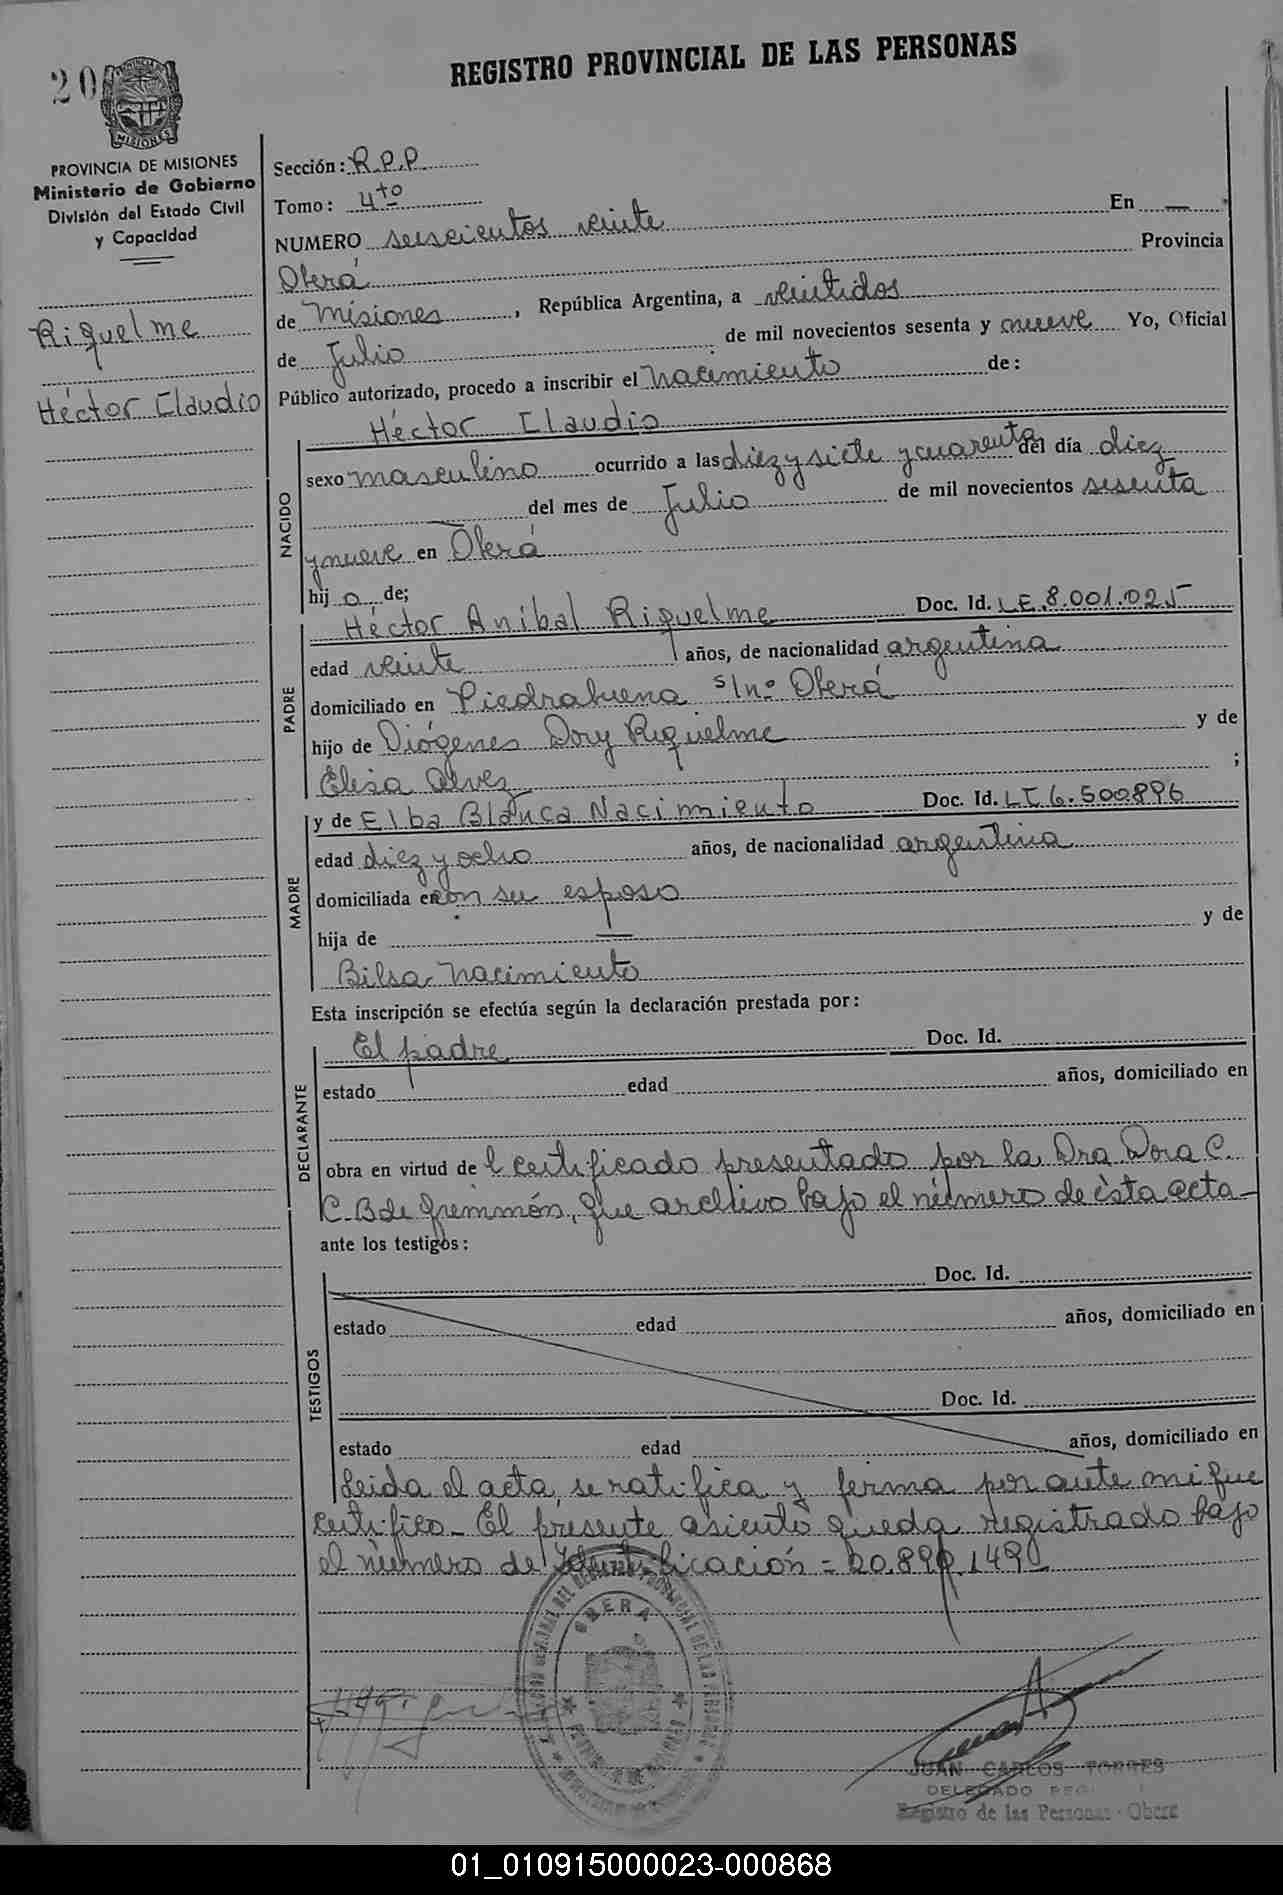 REGISTRO PROVINCIAL DE LAS PERSONAS
20
MISIONES
PROVINCIA DE MISIONES
Ministerio de Gobierno
División del Estado Civil
y Capacidad
Riquelme
Héctor Claudio
Sección: R.P.P.
Tomo: 4to
NUMERO seiscientos veinte En —
Oberá Provincia
de Misiones, República Argentina, a veintidos
de Julio de mil novecientos sesenta y nueve Yo, Oficial
Público autorizado, procedo a inscribir el nacimiento de:
NACIDO
Héctor Claudio
sexo masculino ocurrido a las diez y siete y cuarenta del día diez
del mes de Julio de mil novecientos sesenta
y nueve en Oberá
hij o de;
PADRE
Héctor Aníbal Riquelme Doc. Id. L.E. 8.001.025
edad veinte años, de nacionalidad argentina
domiciliado en Piedrabuena s/nº Oberá
hijo de Diógenes Dory Riquelme y de
Elisa Alvez ;
MADRE
y de Elba Blanca Nacimiento Doc. Id. LC 6.500896
edad diez y ocho años, de nacionalidad argentina
domiciliada en con su esposo
hija de — y de
Bilsa Nacimiento
Esta inscripción se efectúa según la declaración prestada por:
DECLARANTE
El padre Doc. Id.
estado edad años, domiciliado en
obra en virtud de l certificado presentado por la Dra Dora C.
C. B de Gremmón, que archivo bajo el número de ésta acta—
ante los testigos:
TESTIGOS
Doc. Id.
estado edad años, domiciliado en
Doc. Id.
estado edad años, domiciliado en
Leida el acta, se ratifica y firma por ante mi que
certifico— El presente asiento queda registrado bajo
el número de Identificación = 20.890.149
OBERA
JUAN CARLOS TORRES
DELEGADO
Registro de las Personas - Oberá
01_010915000023-000868